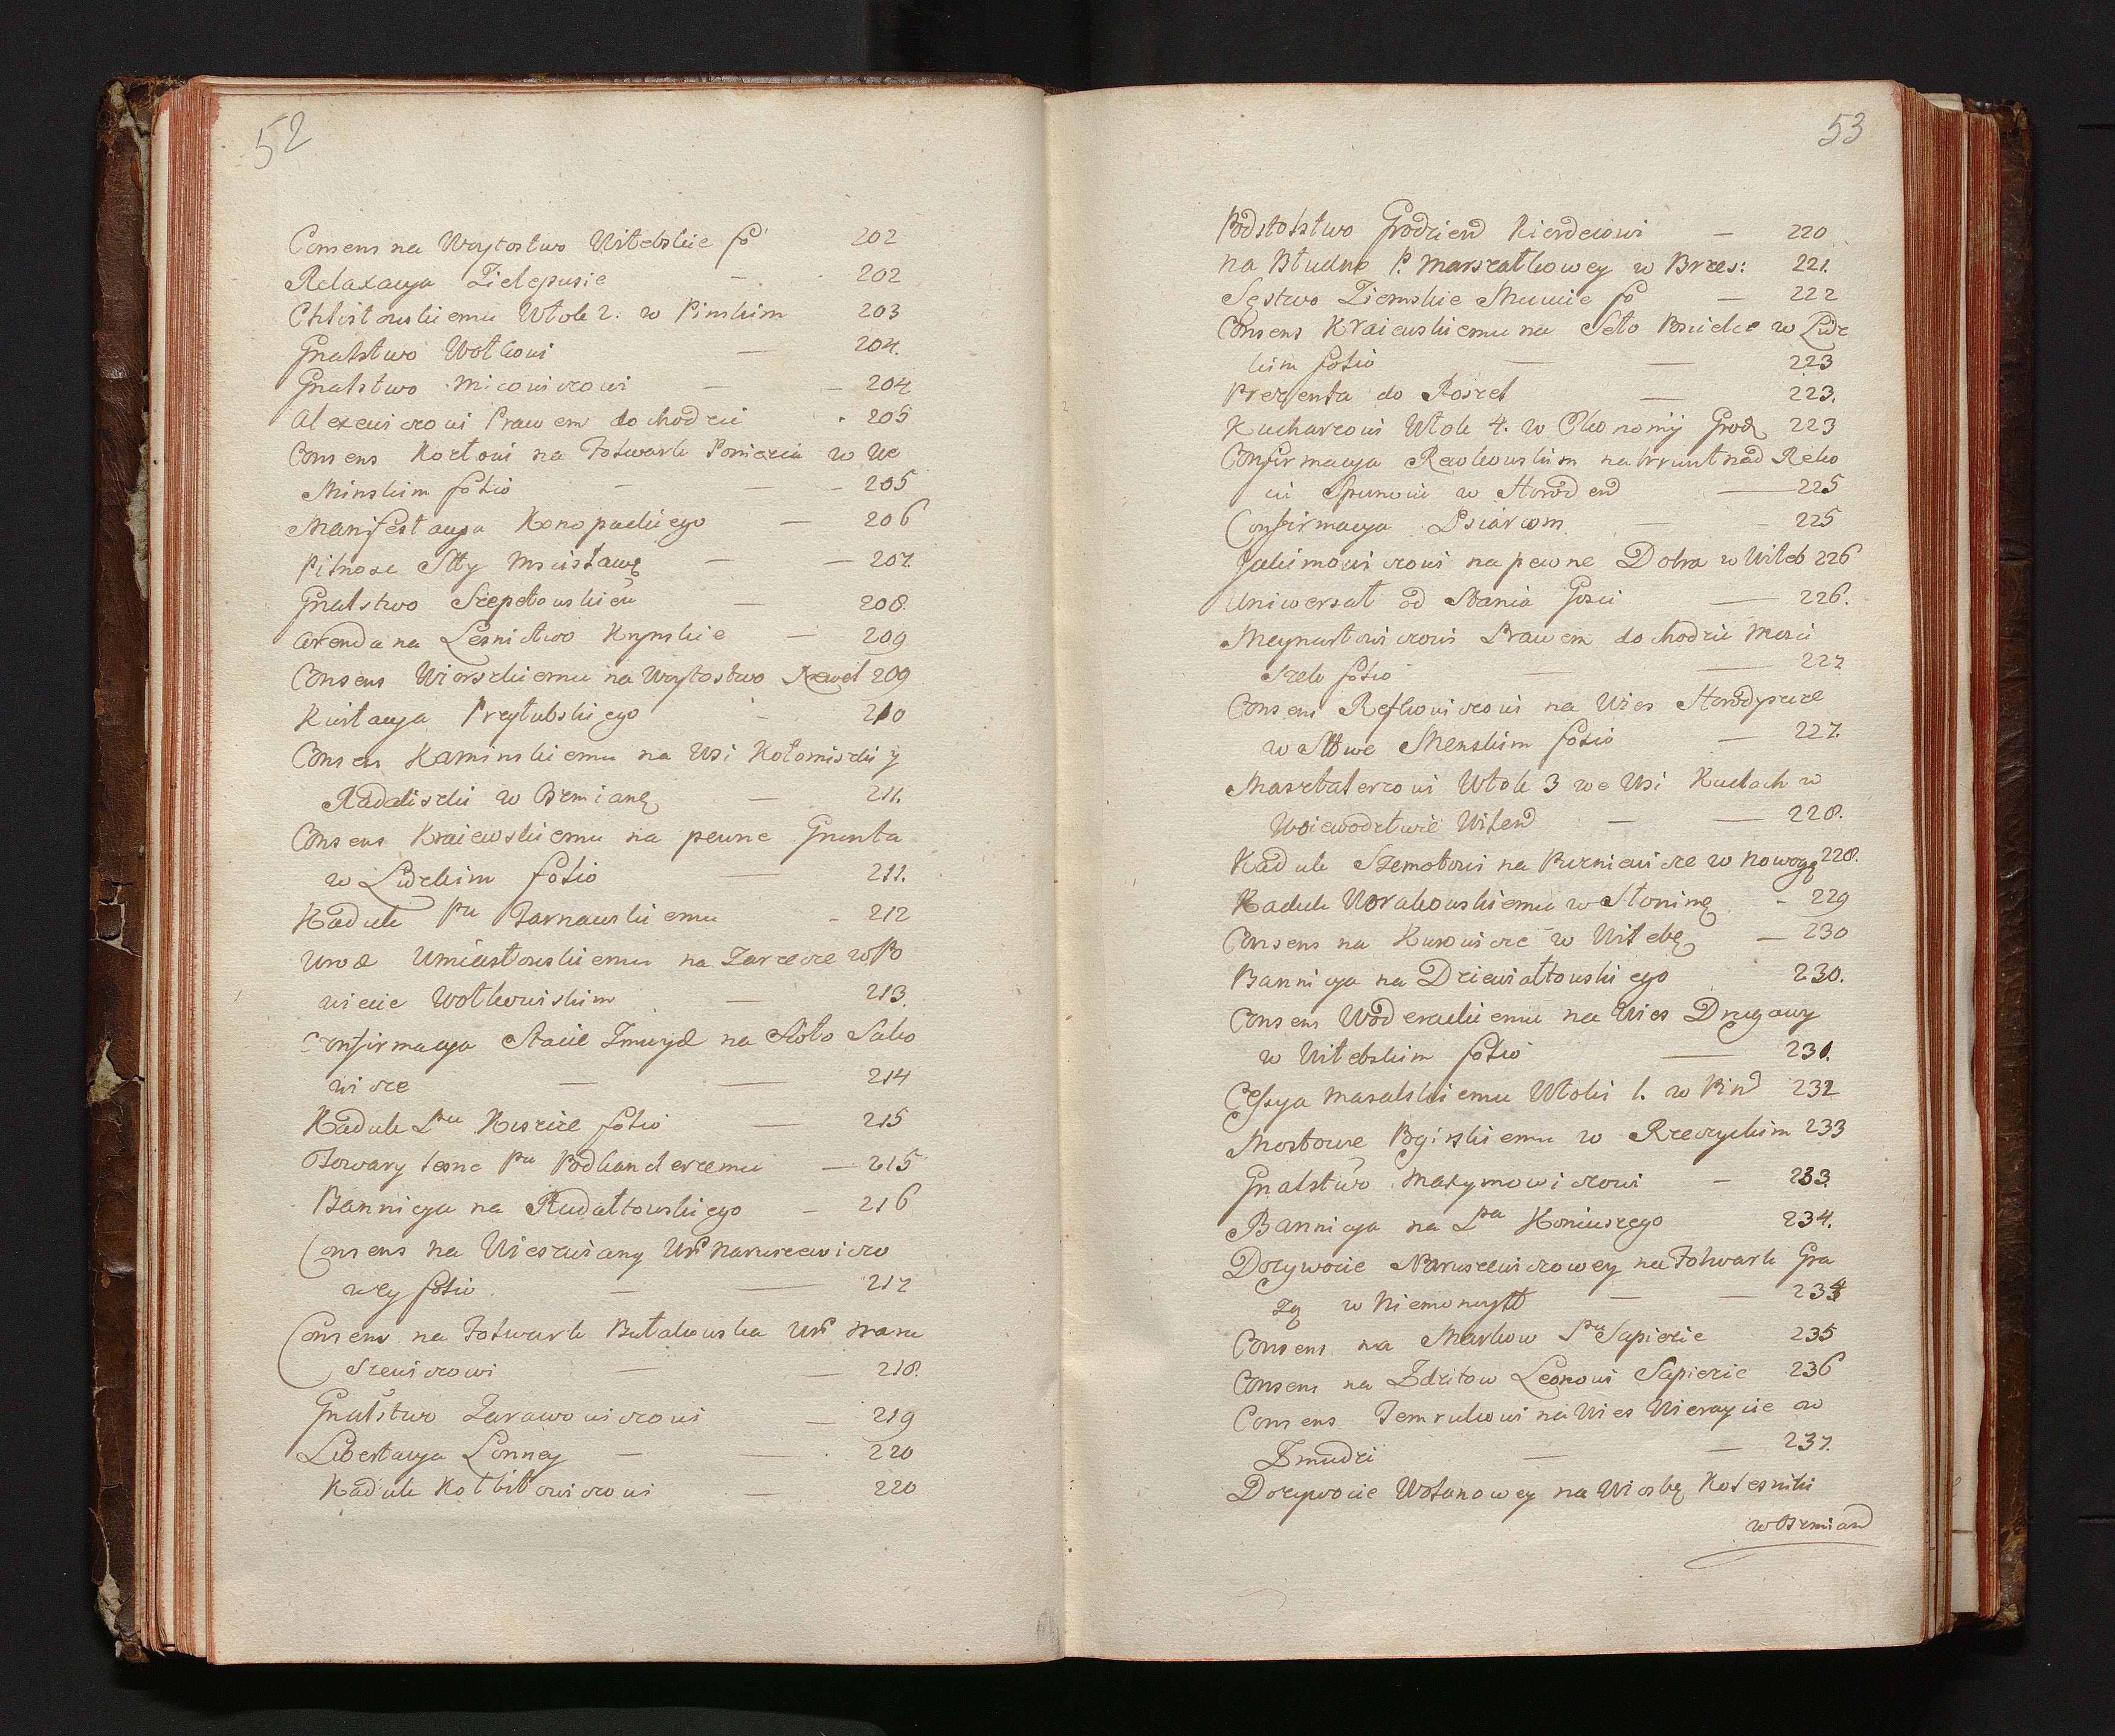 52
Consens na Woytostwo Witebskie fo 202
Relaxacya Zielepusie — 202
Chlistowskiemu Włok 2. w Pinskim 203
Gnalstwo Wołkowi — 204.
Gnalstwo Micowiczowi — — 204
Alexewiczowi Prawem do chodzic 205
Consens Kortowi na Folwark Poniezia w We
Minskim folio — — — 205
Manifestacya Konopackiego — 206
Pilnose Stty Mscisławę — — 207.
Gnalstwo Szepetowskieu — 208.
Arenda na Lesnictwo Krynskie — 209
Consens Wierszkiemu na Woytostwo Rewel 209
Kwitacya Przytubskiego — 210
Consens Kaminskiemu na Wsi Kołomiszki y
Radaliszki w Oszmianę — 211.
Consens Kraiewskiemu na pewne Grunta
w Lidzkim folio — 211.
Kaduk Pu Tarnawskiemu — 212
Urod Umiastowskiemu na Zarzecze w Po
wiecie Wołkowiskim — 213.
Confirmacya Stacie Zmuyd na Sioło Sako
wicze — — 214
Kaduk Pu Koszice folio — 215
Towary leone Pu Podkanclerzemu — 215
Bannicya na Rudałtowskiego — 216
Consens na Wieszwiany Ur Naruszewiczo
wey folio — — 217
Consens na Folwark Butakowska Ur Naru
szewiczowi — — 218.
Gnalstwo Zarawowiczowi — 219
Libertacya Lonney — — 220
Kaduk Kołbitowiczowi — 220
53
Podstolstwo Grodzien Kierdeiowi — 220
na Studno P. Marszałkowey w Brzes: 221.
Sęstwo Ziemskie Smucie fo — 222
Consens Kraiewskiemu na Seło Bucielce w Lidz
kim folio — — 223
Prezenta do Roszel — 223.
Kucharzowi Włok 4. w Ekonomij Grod 223
Confirmacya Rewkowskim na Grunt nad Reko
w Horod en — 225
Confirmacya Psiarzom — — 225
Jakimowiczowi na pewne Dobra w Witeb 226
Uniwersał od Stania Gosci — 226.
Meynartowiczowi Prawem do chodzic Mosci
Szek folio — — 227
Consens Refkowiczowi na Wies Horodyszcze
w Sttwe Menskim folio — 227.
Masztalerzowi Włok 3 we Wsi Kuclach w
Woiewodztwie Wilen — — 228.
Kaduk Szemotowi na Purniewicze w Nowogę 228.
Kaduk Worakowskiemu w Słonimę — 229
Consens na Kurowicze w Witebę — 230
Bannicya na Dziewiałtowskiego 230.
Consens Woderackiemu na Wies Drugawy
w Witebskim folio — 231.
Cessya Masalskiemu Włoki 1. w Pin 232
Mostowe Oginskiemu w Rzeczyckim 233
Gnalstwo Maxymowiczowi — 233.
Bannicya na Pa Koniuszego 234.
Dozywocie Naruszewiczowey na Folwark Gra
zę w Niemonoytt — — 234
Consens na Markow Pu Sapiezie 235
Consens na Zdzitow Leonowi Sapiezie 236
Consens Temrukowi na Wies Wieraycie w
Zmudzi — — 237.
Dozywocie Wołanowey na Wioskę Kolesniki
w Oszmian